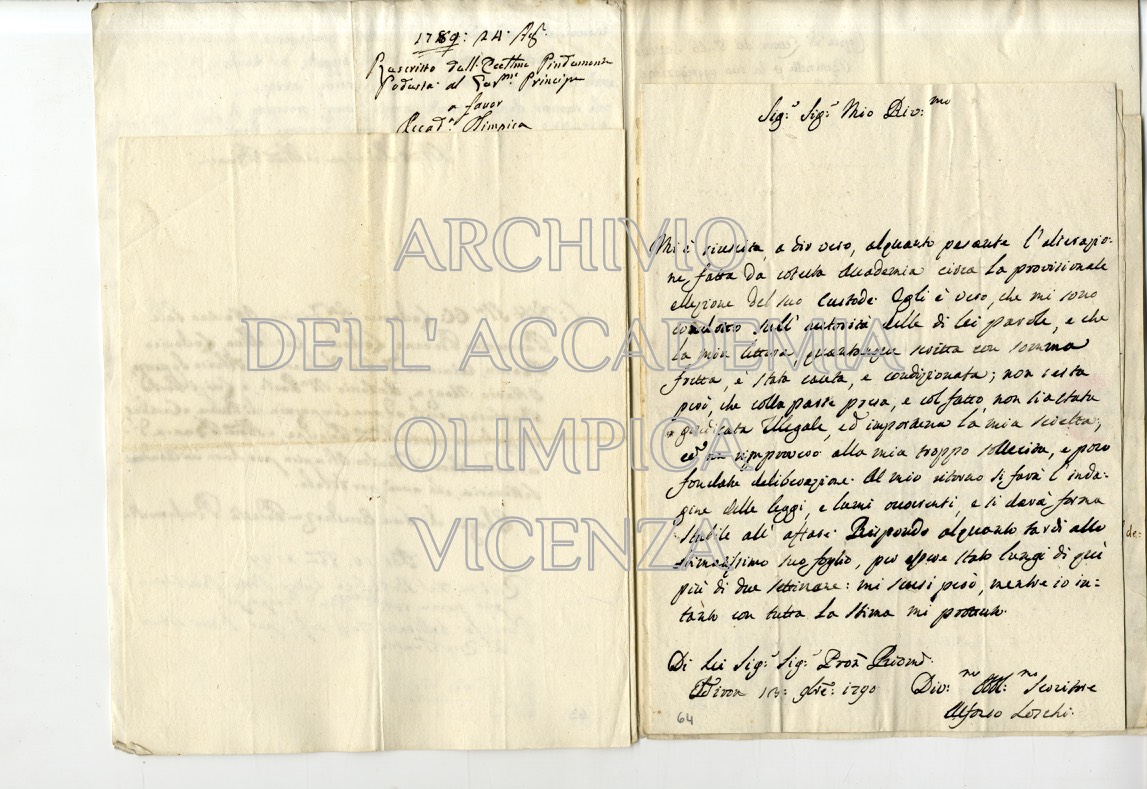 1789: 24. Ag.
Rescritto dell'Eccell.mo Pindemonte
Podestà al Ser.mo Principe
a favor
Accad.a Olimpica
Sig.r Sig.r Mio Riv.mo
Mi è riuscita, a dir vero, alquanto pesante l'alterazio-
ne fatta da cotesta Accademia circa la provisionale
ellezione del suo Custode. Egli è vero, che mi sono
condotto sull'autorità delle di lei parole, e che
la mia lettera, quantunque scritta con somma
fretta, è stata cauta, e condizionata; non resta
però, che colla parte presa, e col fatto, non sia stata
giudicata illegale, ed importuna la mia scielta;
ed un rimprovero alla mia troppo sollecita, e poco
fondata deliberazione. Al mio ritorno si farà l'inda-
gine delle leggi, e lumi occorrenti, e si darà forma
stabile all'affare. Rispondo alquanto tardi allo
stimatissimo suo foglio, per essere stato lungi di quì
più di due settimane: mi scusi però, mentre io in-
tanto con tutta la stima mi protesto.
Di lei Sig.r Sig.r Pron Riv.mo
9bre: 1790 Div.mo Servitore
Alfonso Loschi.
64
de:
ARCHIVIO
DELL'ACCADEMIA
OLIMPICA
VICENZA